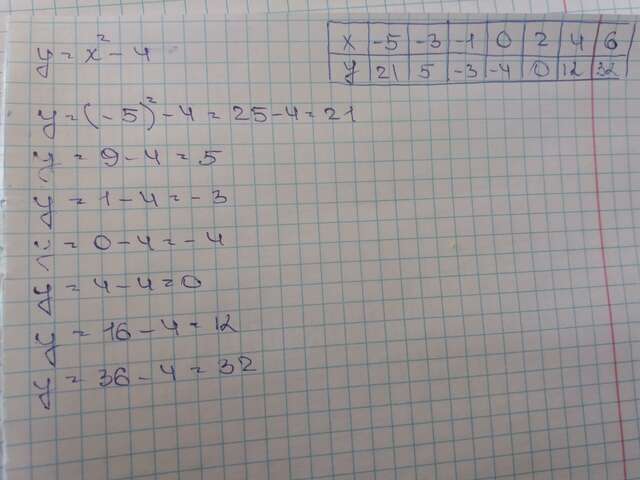 y = x² - 4
x -5 -3 -1 0 2 4 6
y 21 5 -3 -4 0 12 32
y = (-5)² - 4 = 25 - 4 = 21
y = 9 - 4 = 5
y = 1 - 4 = -3
y = 0 - 4 = -4
y = 4 - 4 = 0
y = 16 - 4 = 12
y = 36 - 4 = 32